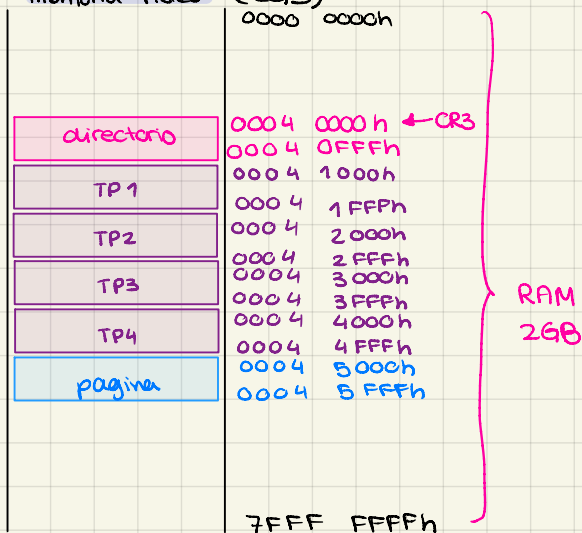 0000 0000h
directorio
0004 0000h ← CR3
0004 0FFFh
TP1
0004 1000h
0004 1FFFh
TP2
0004 2000h
0004 2FFFh
TP3
0004 3000h
0004 3FFFh
TP4
0004 4000h
0004 4FFFh
pagina
0004 5000h
0004 5FFFh
RAM
2GB
7FFF FFFFh